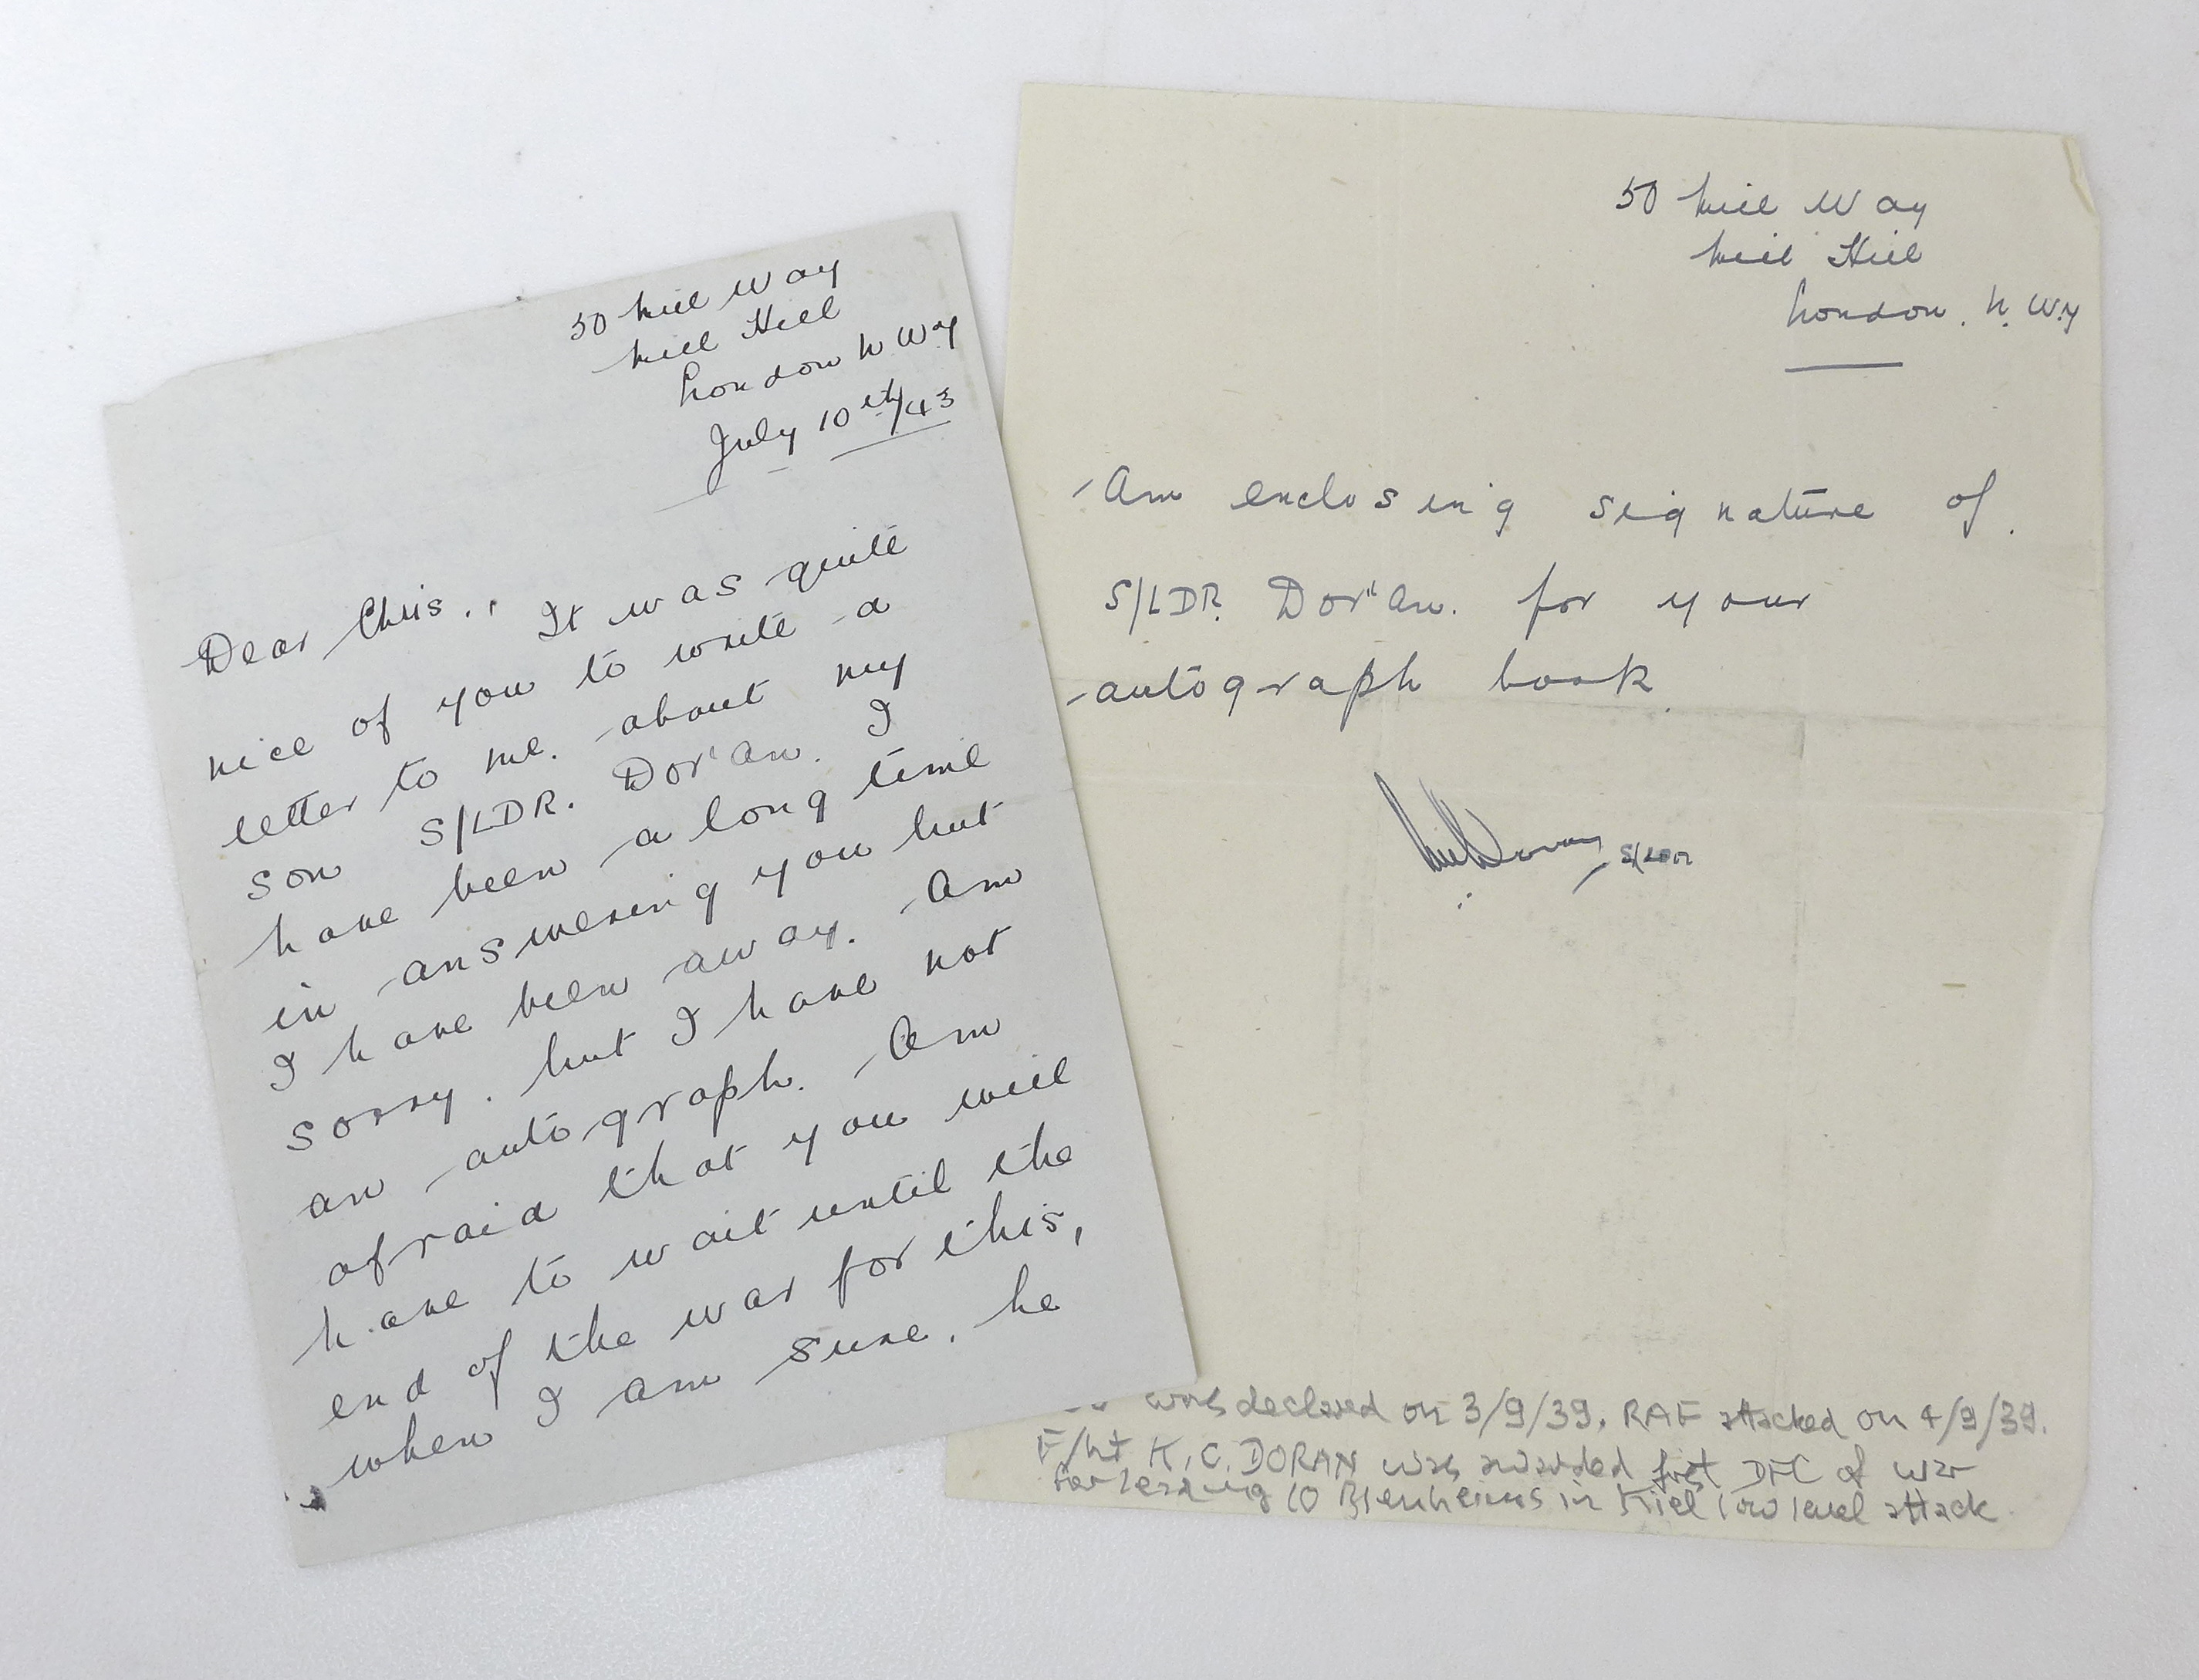 50 Mill Way
Mill Hill
London N W 7
July 10th/43
Dear Chris., It was quite
nice of you to write a
letter to me. about my
son S/LDR. Dor'an. I
have been a long time
in answering you but
I have been away. Am
sorry. but I have not
an autograph. Am
afraid that you will
have to wait until the
end of the war for this,
when I am sure, he
50 Mill Way
Mill Hill
London. N. W.7
Am enclosing signature of.
S/LDR. Dor'an. for your
autograph book.
Doran S/LDR
was declared on 3/9/39. RAF attacked on 4/9/39.
F/Lt K.C. DORAN was awarded first DFC of war
for leading 10 Blenheims in Kiel low level attack